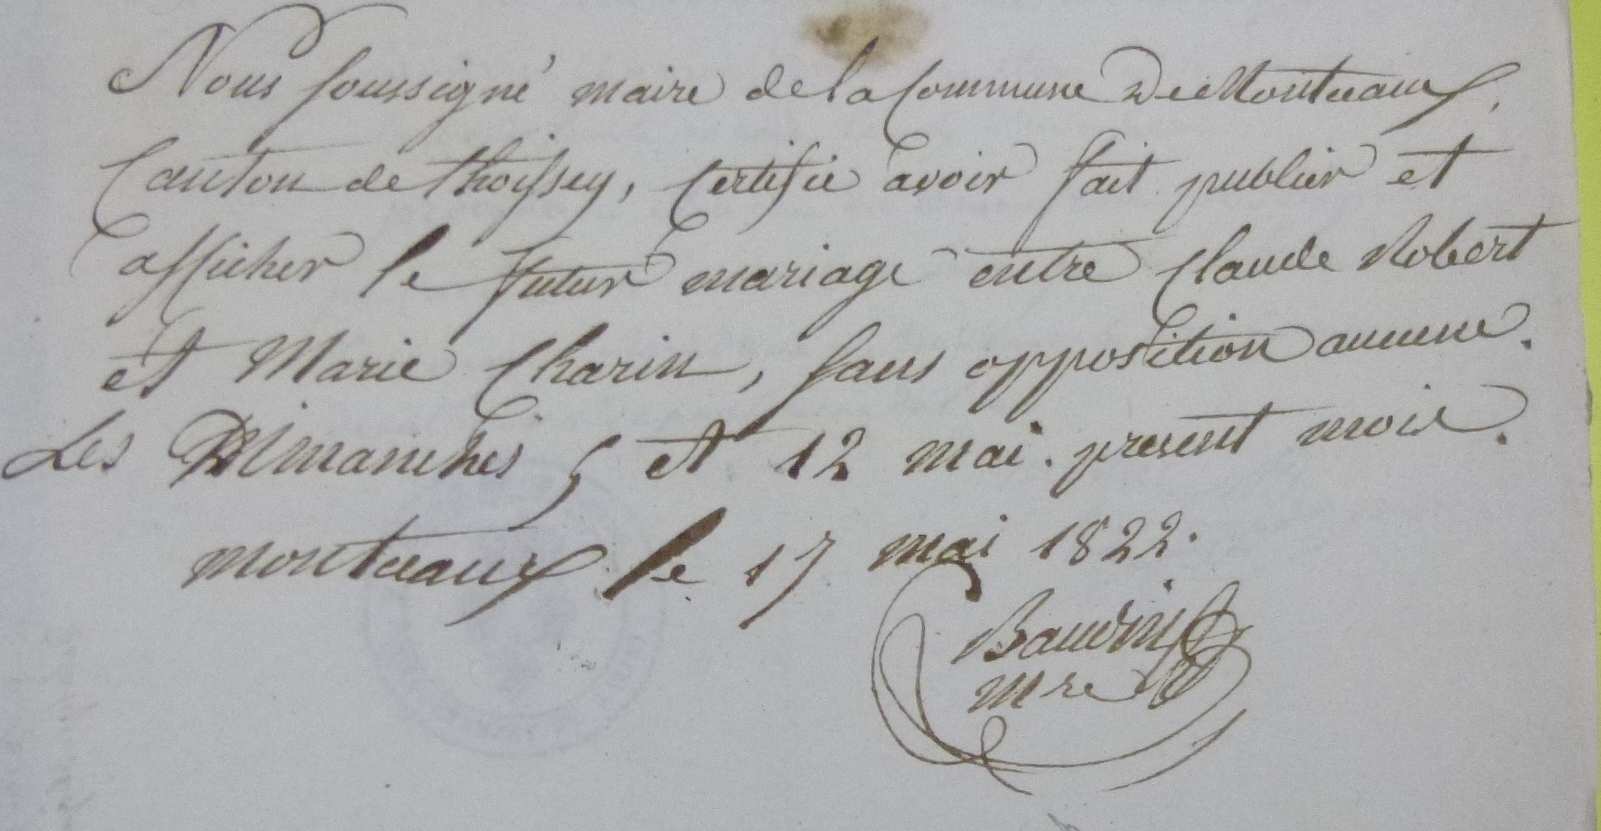 Nous soussigné maire de la Commune De Montceaux,
Canton de thoissey, Certifie avoir fait publier et
afficher le futur mariage entre Claude Robert
et Marie Charin, sans opposition aucune.
Les Dimanches 5 et 12 mai. present mois.
montceaux le 17 mai 1822.
Baudin
mre